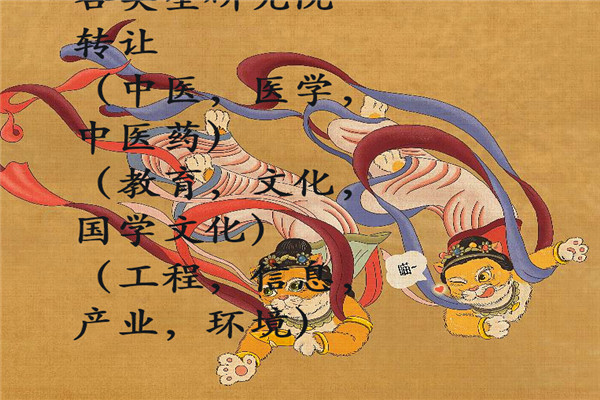 各类型研究院
转让
（中医，医学，
中医药）
（教育，文化，
国学文化）
（工程，信息，
产业，环境）